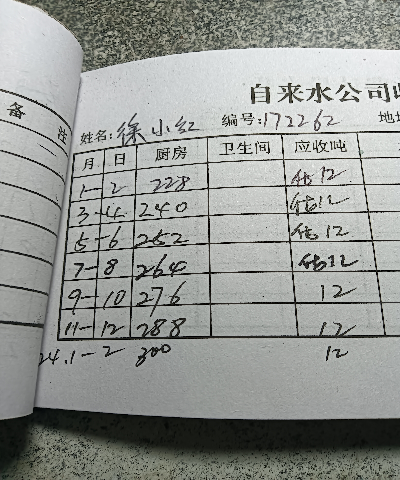 备注
自来水公司收
姓名:徐小红 编号:172262 地址
月 日 厨房 卫生间 应收吨
1-2 228 估12
3-4 240 估12
5-6 252 估12
7-8 264 估12
9-10 276 12
11-12 288 12
24.1-2 300 12